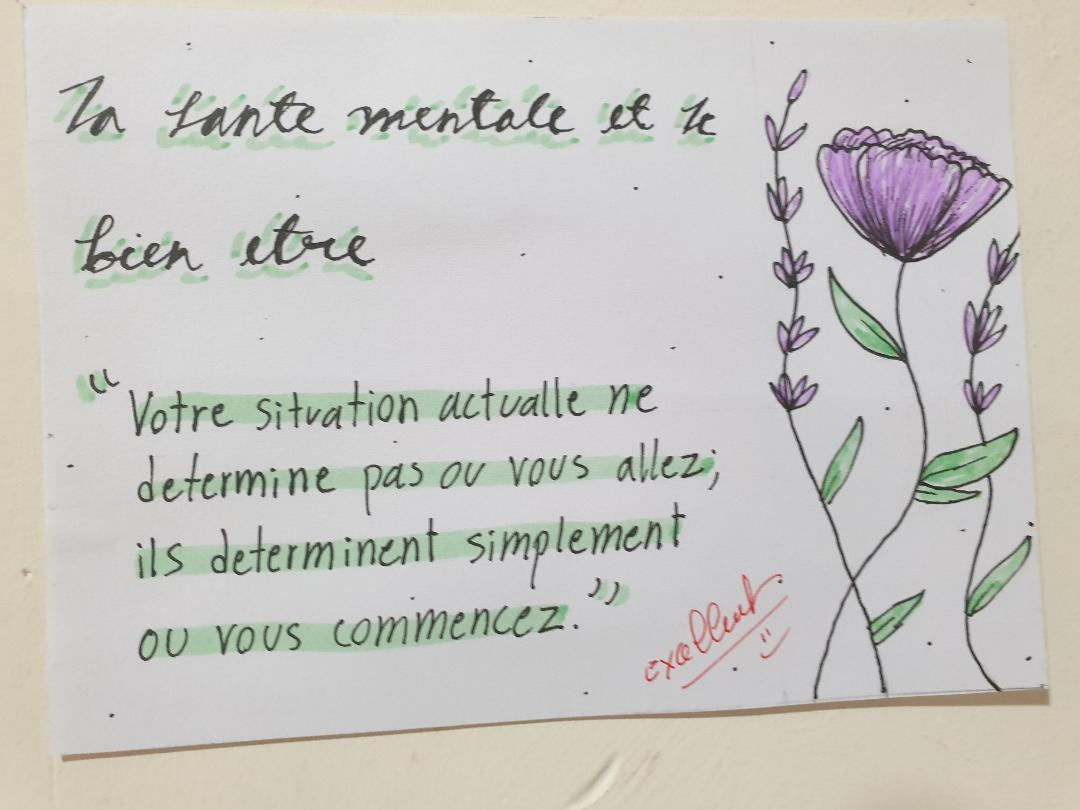 La sante mentale et le
bien etre
“ Votre situation actualle ne
determine pas ou vous allez;
ils determinent simplement
ou vous commencez.”
excellent